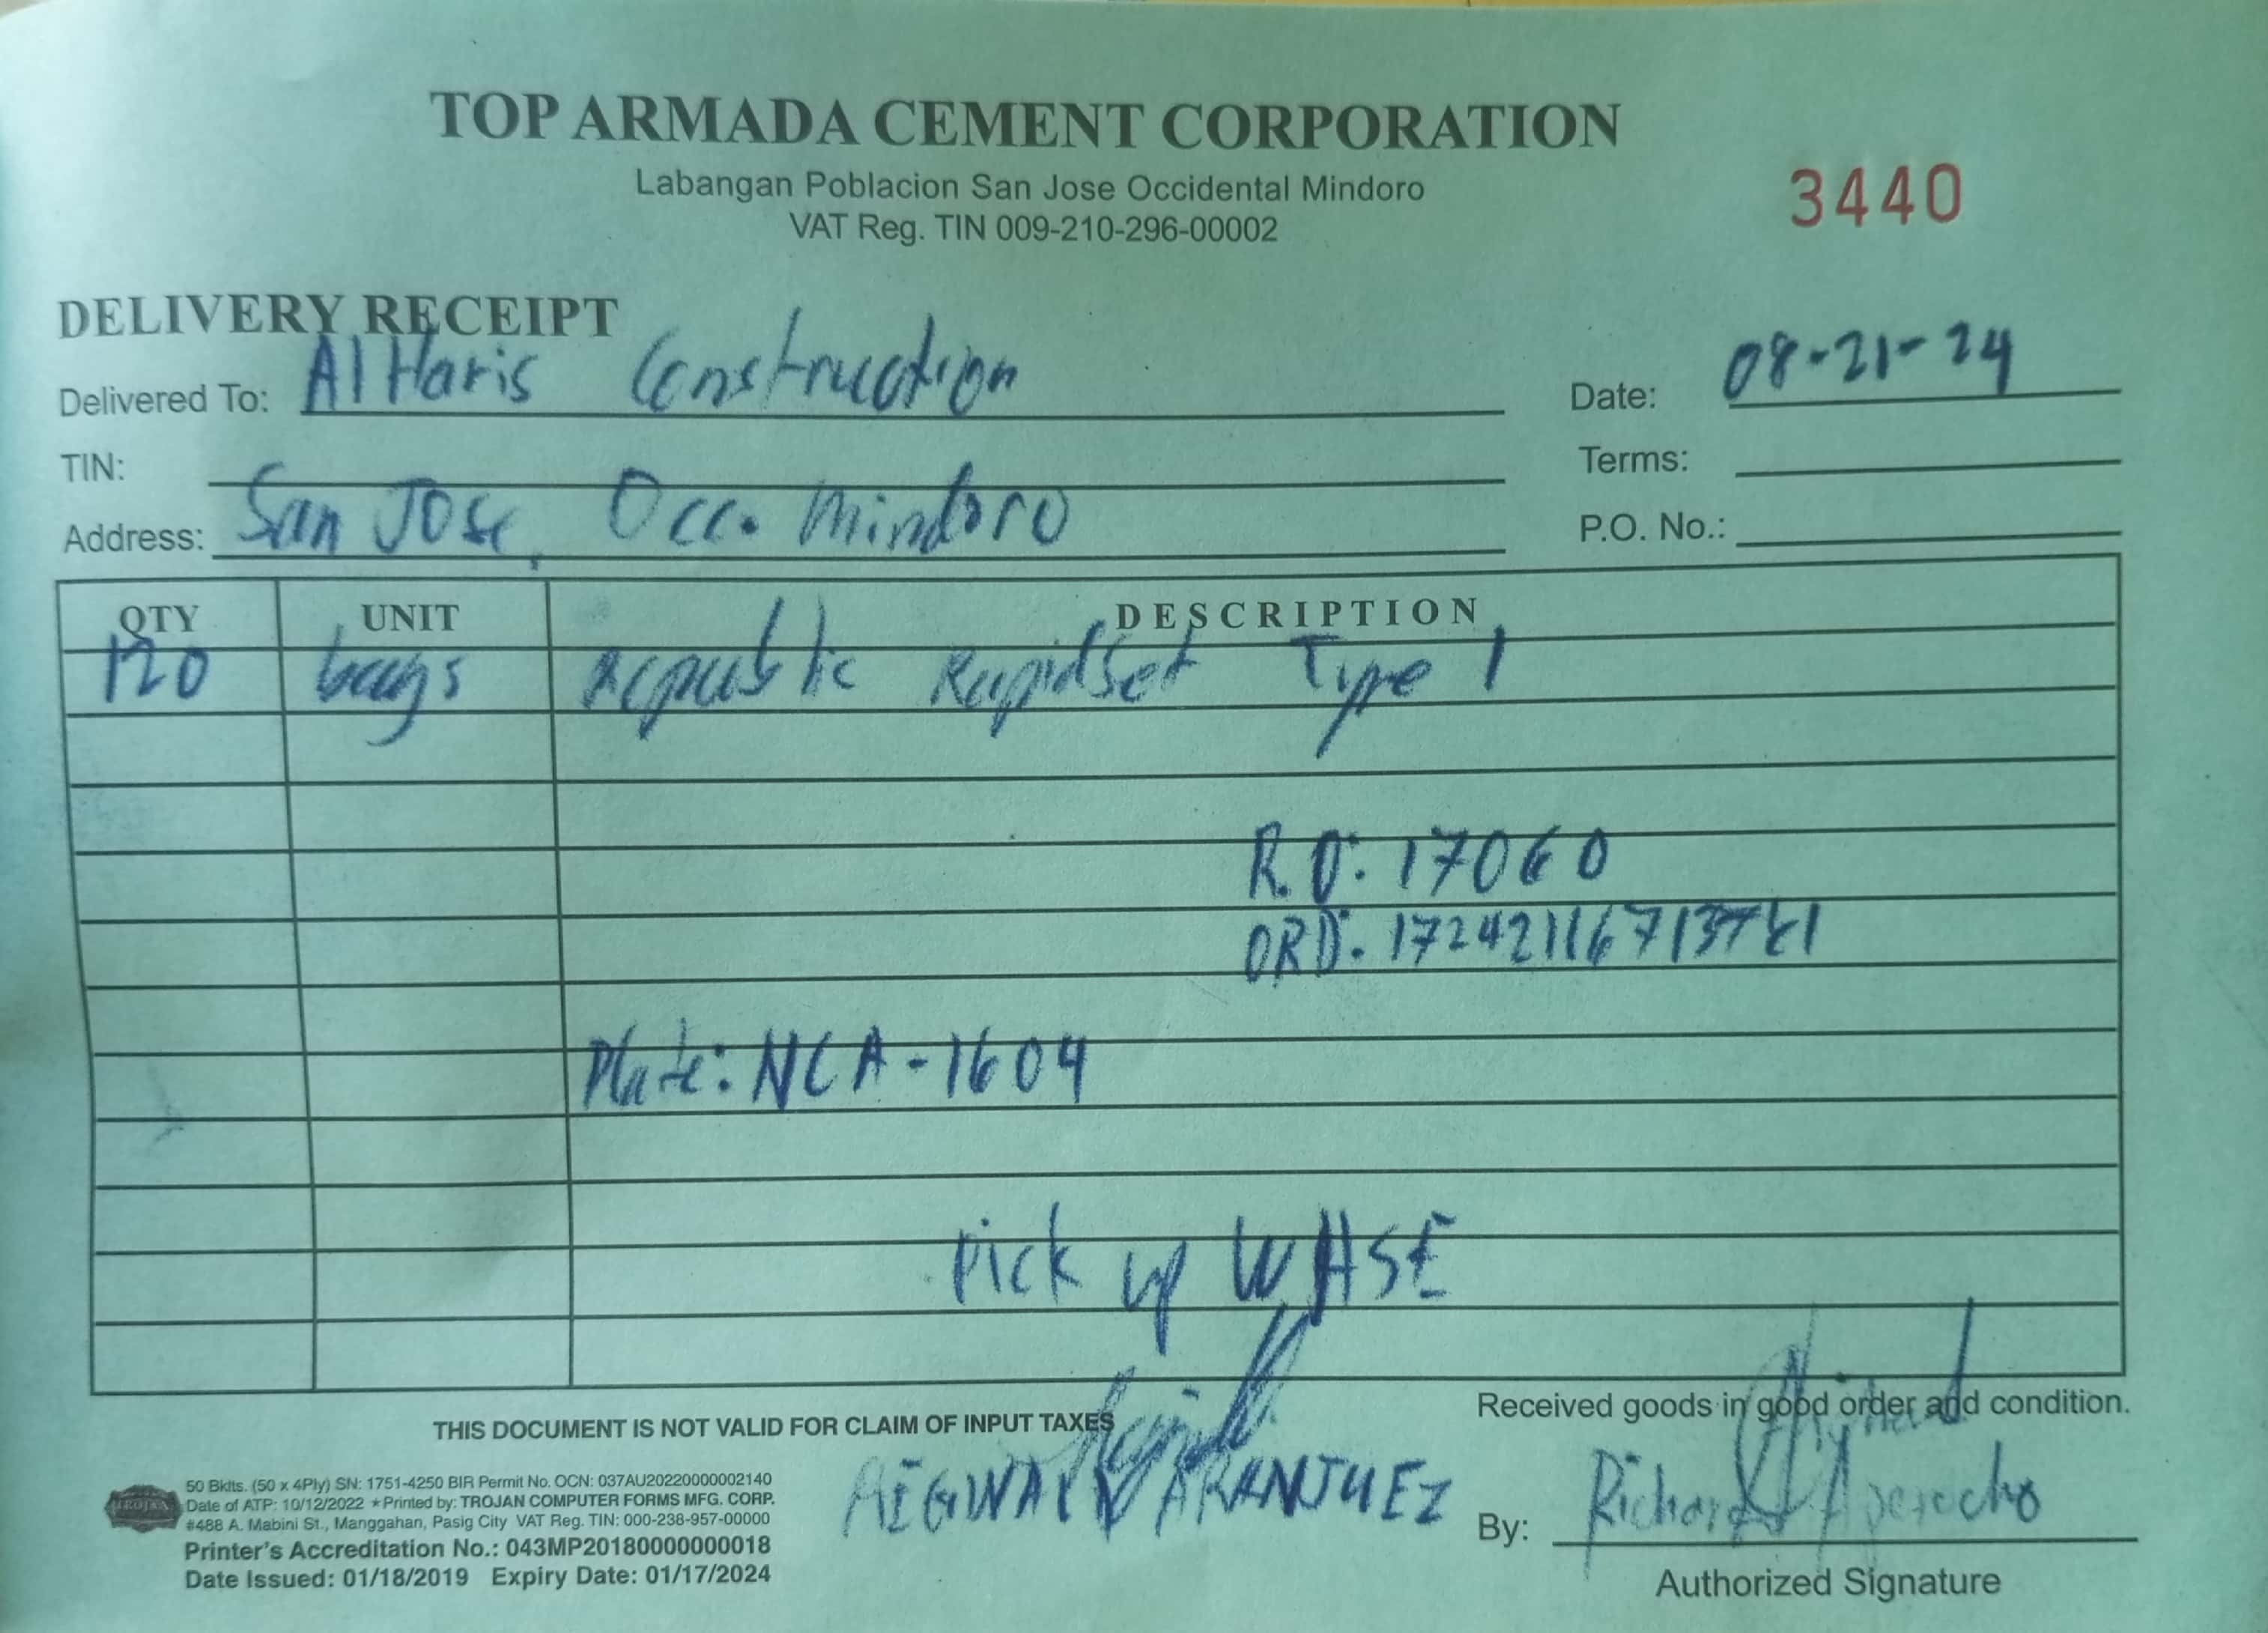 TOP ARMADA CEMENT CORPORATION
Labangan Poblacion San Jose Occidental Mindoro
VAT Reg. TIN 009-210-296-00002
3440
DELIVERY RECEIPT
Delivered To: Al Haris Construction
Date: 08-21-24
TIN:
Terms:
Address: San Jose, Occ. Mindoro
P.O. No.:
QTY UNIT DESCRIPTION
120 bags Republic Rapidset Type 1
R.O: 17060
ORD:
Plate: NCA-1604
Pick up WHSE
THIS DOCUMENT IS NOT VALID FOR CLAIM OF INPUT TAXES
Received goods in good order and condition.
50 Bklts. (50 x 4Ply) SN: 1751-4250 BIR Permit No. OCN: 037AU20220000002140
TROJAN Date of ATP: 10/12/2022 ★Printed by: TROJAN COMPUTER FORMS MFG. CORP.
#488 A. Mabini St., Manggahan, Pasig City VAT Reg. TIN: 000-238-957-00000
Printer's Accreditation No.: 043MP20180000000018
Date Issued: 01/18/2019 Expiry Date: 01/17/2024
ARANJUEZ
By: Richard
Authorized Signature